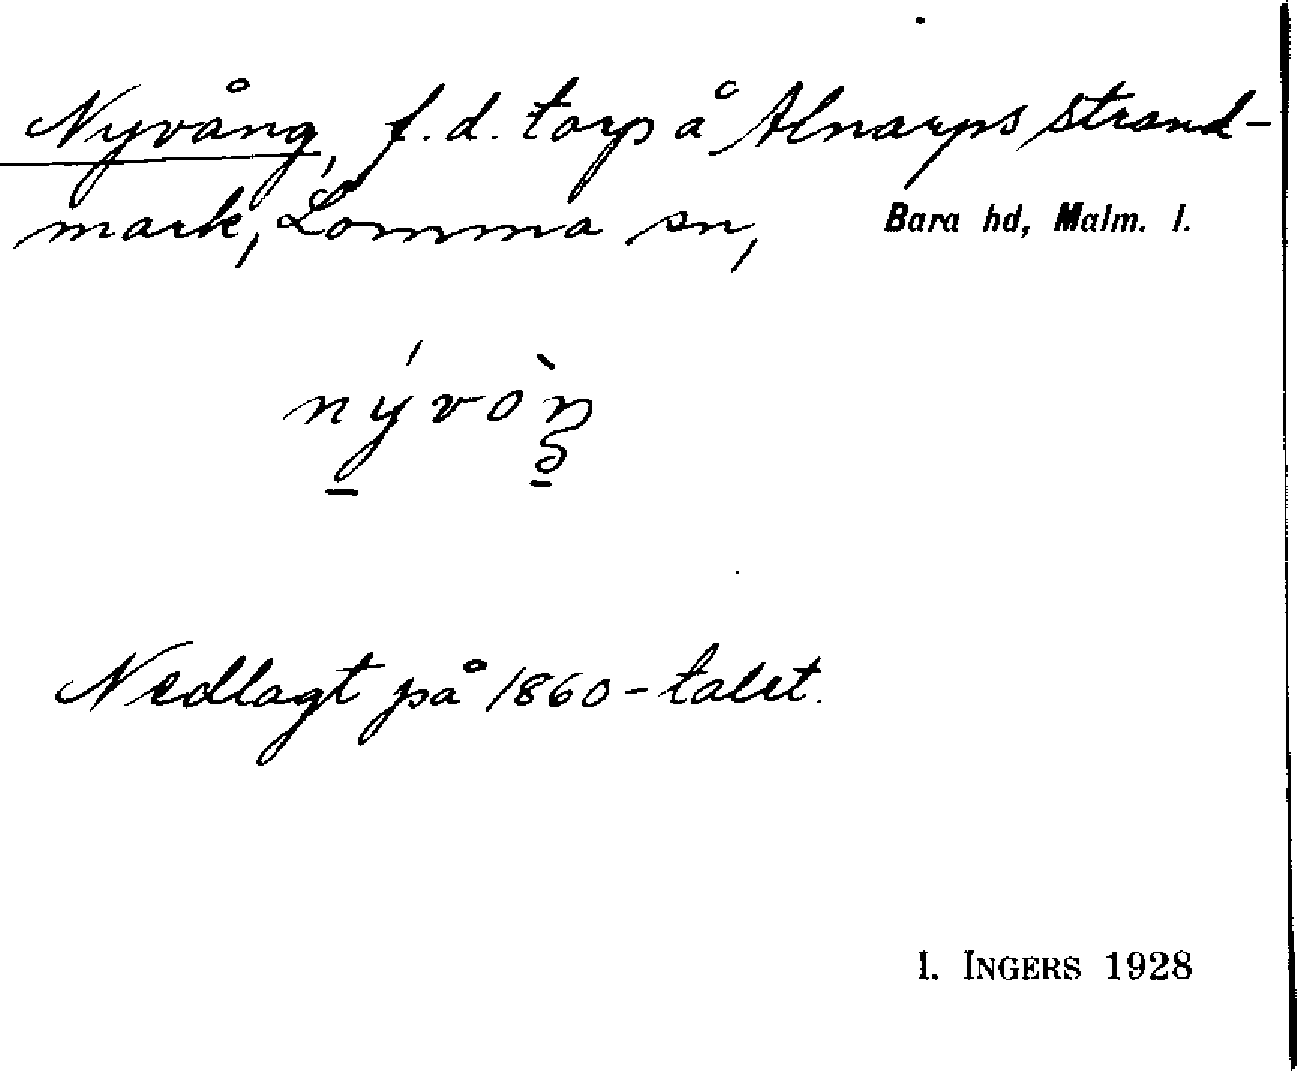 Nyvång, f.d. torp å Alnarps strand-
mark, Lomma sn, Bara hd, Malm. l.
nývòŋ
Nedlagt på 1860-talet.
I. INGERS 1928